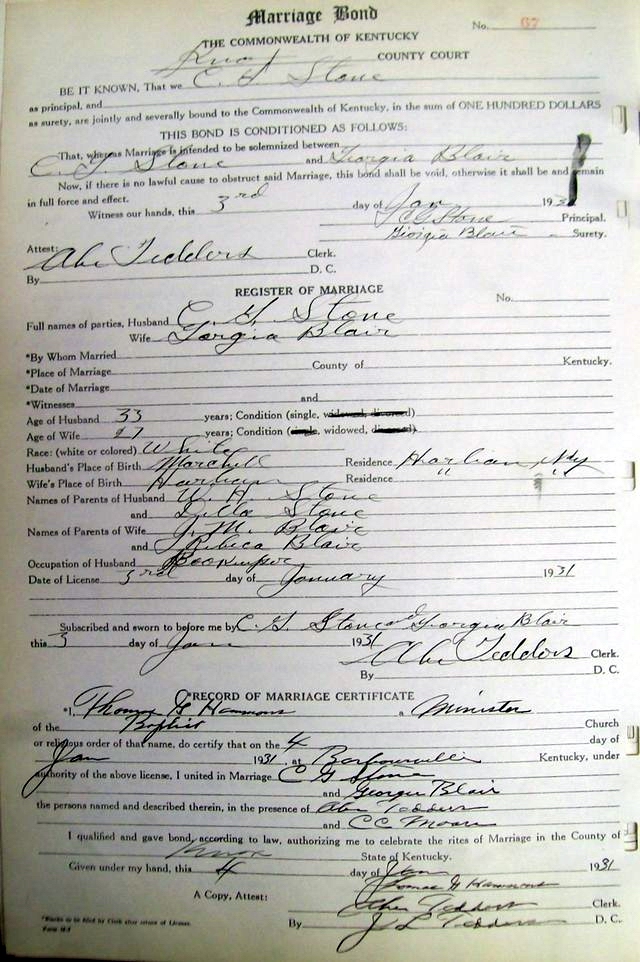 Marriage Bond
No. 67
THE COMMONWEALTH OF KENTUCKY
Knox COUNTY COURT
BE IT KNOWN, That we C. G. Stone
as principal, and
as surety, are jointly and severally bound to the Commonwealth of Kentucky, in the sum of ONE HUNDRED DOLLARS
THIS BOND IS CONDITIONED AS FOLLOWS:
That, whereas Marriage is intended to be solemnized between
C. G. Stone and Georgia Blair
Now, if there is no lawful cause to obstruct said Marriage, this bond shall be void, otherwise it shall be and remain
in full force and effect.
Witness our hands, this 3rd day of Jan 1931
C G Stone Principal.
Georgia Blair Surety.
Attest:
Abe Tedders Clerk.
By D. C.
REGISTER OF MARRIAGE
No.
Full names of parties, Husband C. G. Stone
Wife Gorgia Blair
*By Whom Married
*Place of Marriage County of Kentucky.
*Date of Marriage
*Witnesses and
Age of Husband 33 years; Condition (single, widowed, divorced)
Age of Wife 27 years; Condition (single, widowed, divorced)
Race: (white or colored) White
Husband's Place of Birth Residence Harlan, Ky
Wife's Place of Birth Harlan Residence " "
Names of Parents of Husband W. H. Stone
and Della Stone
Names of Parents of Wife J. M. Blair
and Rebica Blair
Occupation of Husband Bookeeper
Date of License 3rd day of January 1931
Subscribed and sworn to before me by C. G. Stone and Georgia Blair
this 3 day of Jan 1931
Abe Tedders Clerk.
By D. C.
RECORD OF MARRIAGE CERTIFICATE
*I, Thomas G Hammons a Minister
of the Baptist Church
or religious order of that name, do certify that on the 4 day of
Jan 1931, at Barbourville Kentucky, under
authority of the above license, I united in Marriage C G Stone
and Georgia Blair
the persons named and described therein, in the presence of Abe Tedders
and C C Moore
I qualified and gave bond, according to law, authorizing me to celebrate the rites of Marriage in the County of
Knox State of Kentucky.
Given under my hand, this 4 day of Jan 1931
Thomas G Hammons
A Copy, Attest: Abe Tedders Clerk.
By J L Tedders D. C.
*Blanks to be filled by Clerk after return of License.